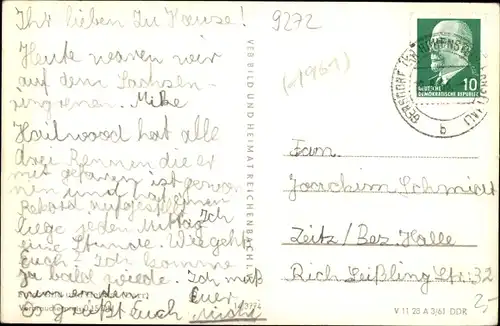 Ihr lieben Zu Hause!
Heute waren wir
auf dem Sachsen-
ring
Mike
Hailwood hat alle
drei Rennen die er
mit gefaren ist gewon
nen und
Rekord aufgestellt
Ich
liege jeden Mittag
eine Stunde. Wie geht
Euch? Ich komme
ja bald wiede. Ich muß
nun enden
Euer
Es grüßt Euch
9272
(-1961)
VEB BILD UND HEIMAT REICHENBACH
DEUTSCHE
DEMOKRATISCHE REPUBLIK
10
GERSDORF
b
Fam.
Joachim Schmidt
Zeitz/Bez. Halle
Rich Leißling Str. 32
V 11 28 A 3/61 DDR